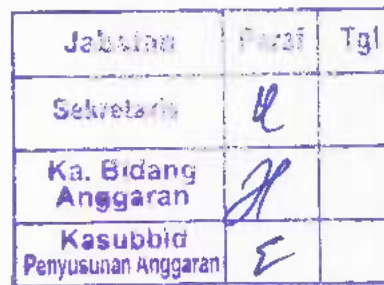 Jabatan Paraf Tgl
Sekretaris
Ka. Bidang
Anggaran
Kasubbid
Penyusunan Anggaran